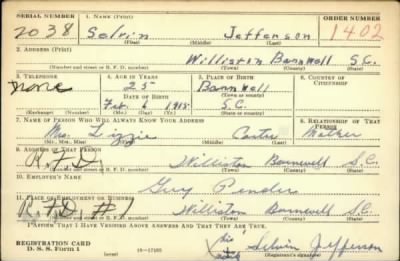 SERIAL NUMBER 1. NAME (Print) ORDER NUMBER
2038 Selvin Jefferson 1402
(First) (Middle) (Last)
2. ADDRESS (Print)
Williston Barnwell S.C.
(Number and street or R. F. D. number) (Town) (County) (State)
3. TELEPHONE 4. AGE IN YEARS 5. PLACE OF BIRTH 6. COUNTRY OF CITIZENSHIP
none 25 Barnwell
DATE OF BIRTH (Town or county)
Feb. 6 1915 S.C.
(Exchange) (Number) (Mo.) (Day) (Yr.) (State or country)
7. NAME OF PERSON WHO WILL ALWAYS KNOW YOUR ADDRESS 8. RELATIONSHIP OF THAT PERSON
Mrs. Lizzie Carter Mother
(Mr., Mrs., Miss) (First) (Middle) (Last)
9. ADDRESS OF THAT PERSON
R.F.D. Williston Barnwell S.C.
(Number and street or R. F. D. number) (Town) (County) (State)
10. EMPLOYER'S NAME
Guy Pender
11. PLACE OF EMPLOYMENT OR BUSINESS
R.F.D. #1 Williston Barnwell S.C.
(Number and street or R. F. D. number) (Town) (County) (State)
I AFFIRM THAT I HAVE VERIFIED ABOVE ANSWERS AND THAT THEY ARE TRUE.
REGISTRATION CARD his Selvin Jefferson
D. S. S. FORM 1 (over) 16—17105 mark (Registrant's signature)